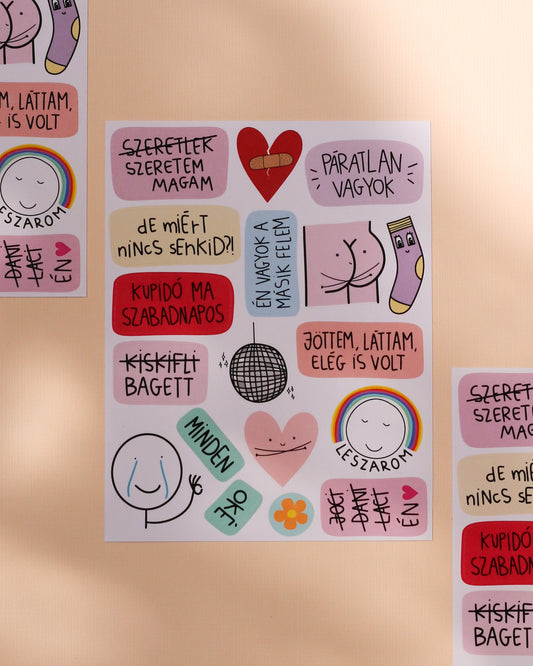 M, LÁTTAM,
IS VOLT
LESZAROM
DANI
LACI
ÉN
SZERETLEK
SZERETEM
MAGAM
PÁRATLAN
VAGYOK
dE MiÉRT
NiNCS SENKiD?!
ÉN VAGYOK A
MÁSIK FELEM
KUPIDÓ MA
SZABADNAPOS
JÖTTEM, LÁTTAM,
ELÉG IS VOLT
KiSKiFLi
BAGETT
LESZAROM
MINDEN
OKÉ
JOCI
DANI
LACI
ÉN
SZERET
SZERETE
MAG
dE MiÉ
NiNCS SEN
KUPIDÓ
SZABADN
KiSKiF
BAGET